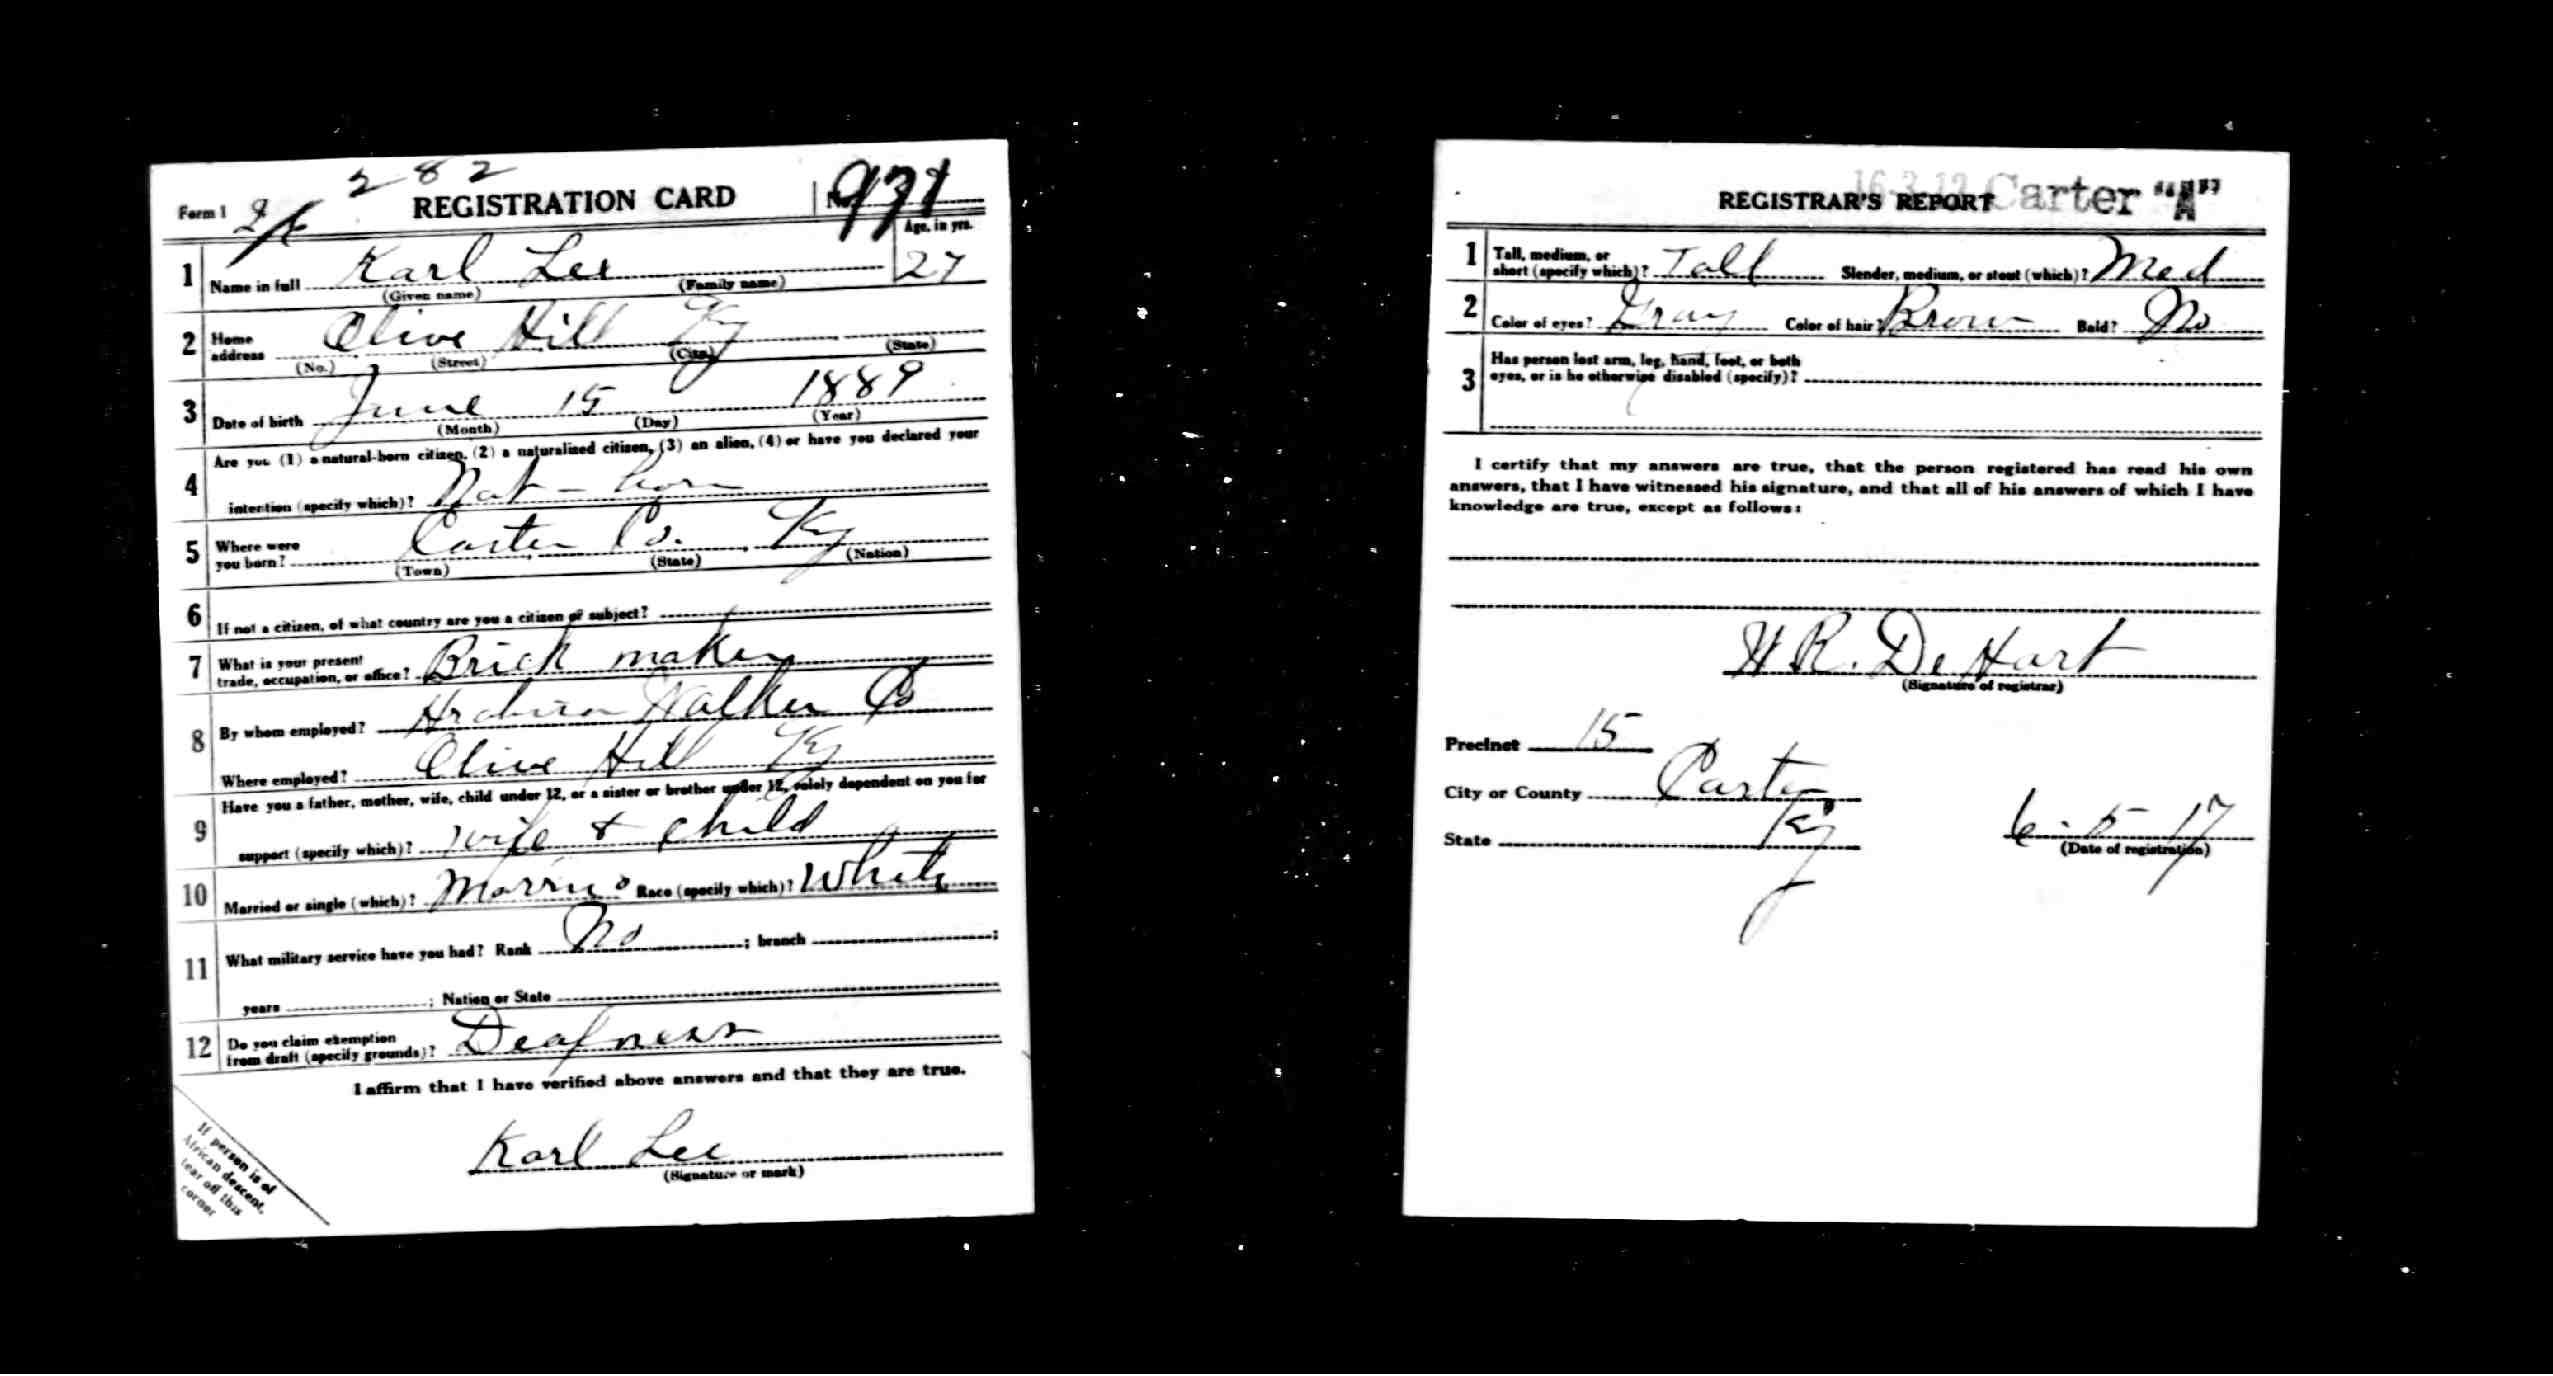 282
Form 1 REGISTRATION CARD No.
Age, in yrs.
1 Name in full Karl Lee 27
(Given name) (Family name)
2 Home address Olive Hill Ky
(No.) (Street) (City) (State)
3 Date of birth June 15 1889
(Month) (Day) (Year)
4 Are you (1) a natural-born citizen, (2) a naturalized citizen, (3) an alien, (4) or have you declared your
intention (specify which)? Nat - born
5 Where were you born? Carter Co. Ky
(Town) (State) (Nation)
6 If not a citizen, of what country are you a citizen or subject?
7 What is your present
trade, occupation, or office? Brick maker
8 By whom employed? Walker Co
Where employed? Olive Hill Ky
9 Have you a father, mother, wife, child under 12, or a sister or brother under 12, solely dependent on you for
support (specify which)? wife + child
10 Married or single (which)? Race (specify which)? White
11 What military service have you had? Rank No ; branch ;
years ; Nation or State
12 Do you claim exemption
from draft (specify grounds)? Deafness
I affirm that I have verified above answers and that they are true.
Karl Lee
(Signature or mark)
If person is of
African descent,
tear off this
corner
REGISTRAR'S REPORT Carter "A"
1 Tall, medium, or
short (specify which)? Tall Slender, medium, or stout (which)? Med
2 Color of eyes? Gray Color of hair? Brown Bald? No
3 Has person lost arm, leg, hand, foot, or both
eyes, or is he otherwise disabled (specify)?
I certify that my answers are true, that the person registered has read his own
answers, that I have witnessed his signature, and that all of his answers of which I have
knowledge are true, except as follows:
H R. De Hart
(Signature of registrar)
Precinct 15
City or County Carter
State Ky 6-5-17
(Date of registration)